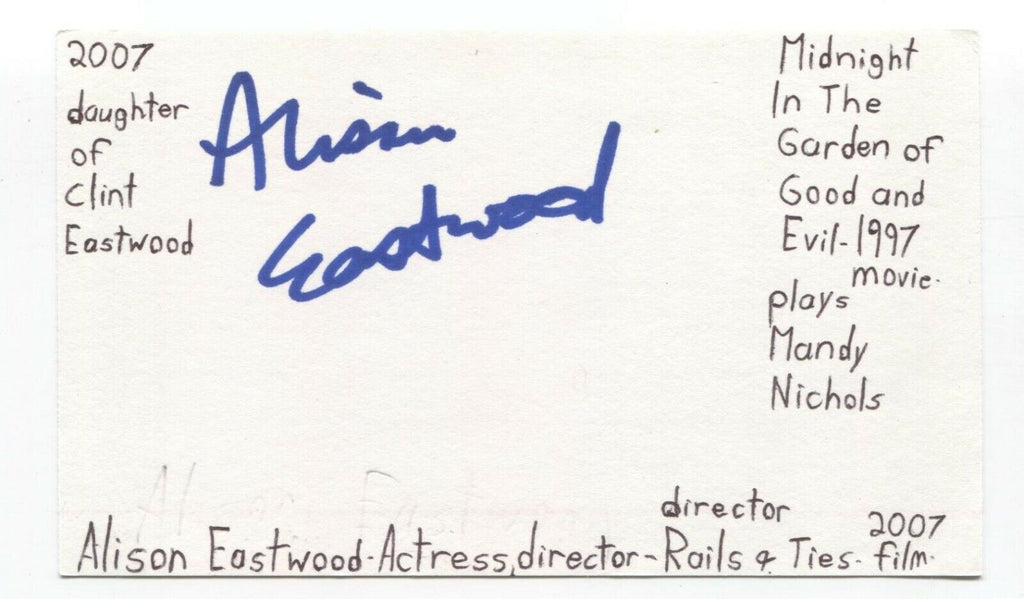 2007
daughter
of
Clint
Eastwood
Alison
Eastwood
Midnight
In The
Garden of
Good and
Evil-1997
movie.
plays
Mandy
Nichols
director
2007
Alison Eastwood-Actress,director-Rails & Ties- film.